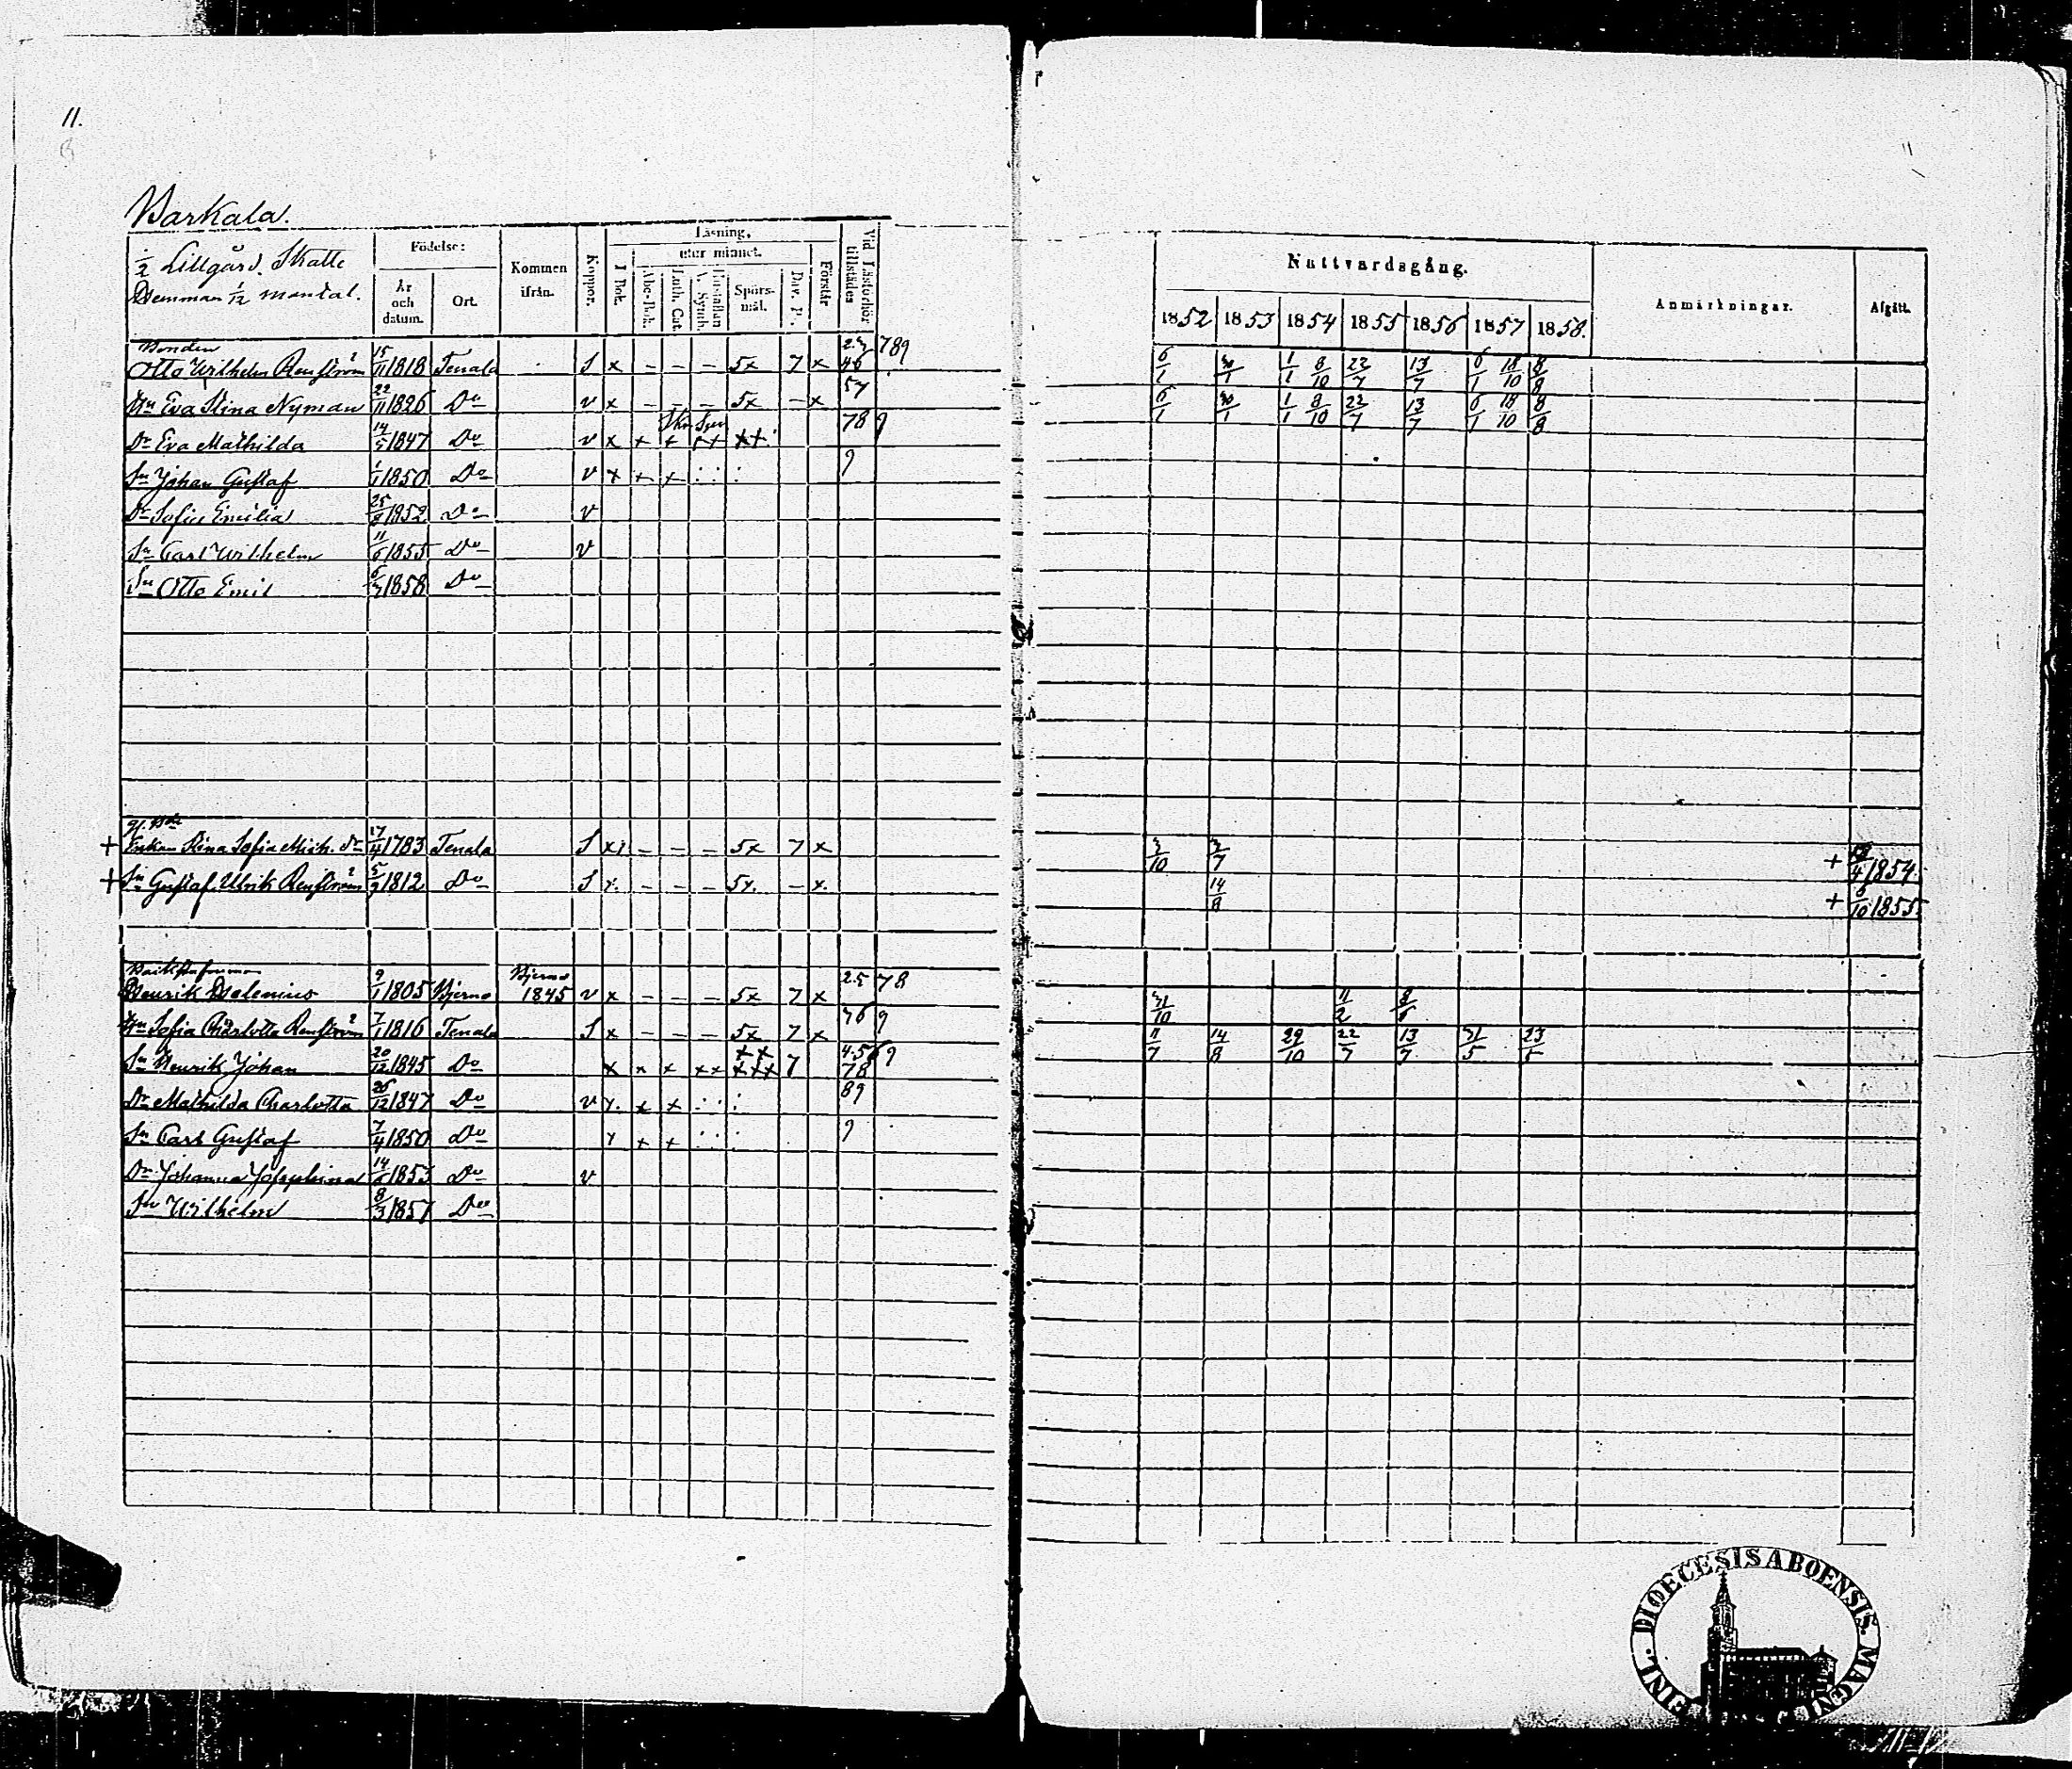 11.
Barkala.
1/2 Lillgård. Skatte
Hemman 1/12 mantal.
Födelse:
År och datum.
Ort.
Kommen ifrån.
Koppor.
Läsning.
I Bok.
utur minnet.
Abc-Bok.
Luth. Cat.
A. Symb.
Spörs-mål.
Dav. Ps.
Förstår
Vid Läsförhör tillstädes
Nattvardsgång.
1852 1853 1854 1855 1856 1857 1858.
Anmärkningar.
Afgått.
Bonden
Otto Wilhelm Renström 15/11 1818 Tenala S x – – – 5x 7 x 23 46 789 6/1 30/1 1/1 8/10 22/7 13/7 6/1 18/10 8/8
Hu Eva Stina Nyman 22/11 1826 Do v x – – – 5x – x 57 6/1 30/1 1/1 8/10 22/7 13/7 6/1 18/10 8/8
Dr Eva Mathilda 14/5 1847 Do v x + + ++ 78 9
Sn Johan Gustaf 1/1 1850 Do v x + x 9
Dr Sofia Emilia 25/8 1852 Do v
Sn Carl Wilhelm 11/6 1855 Do v
Sn Otto Emil 1858 Do
+ Enkan Stina Sofia Mich. dr 17/4 1783 Tenala S x – – – 5x 7 x 3/10 3/7 + 1854.
+ Sn Gustaf Ulrik Renström 1812 Do S x. – – – 5x. – x. 14/8 + 6/10 1855
Henrik Helenius 9/1 1805 Bjerno Bjerno 1845 v x – – – 5x 7 x 25 78 31/10 11/2
Hu Sofia Charlotta Renström 7/1 1816 Tenala S x – – – 5x 7 x 76 9 11/7 14/8 29/10 22/7 13/7 31/5
Sn Henrik Johan 20/12 1845 Do x x x xx 7 456 9 78
Dr Mathilda Charlotta 26/12 1847 Do v x. x + 89
Sn Carl Gustaf 7/4 1850 Do x + + 9
Dr Johanna Josephina 14/6 1853 Do v
Sn Wilhelm 8/3 1857 Do
DIOECESIS ABOENSIS. MAGNI
FINL.